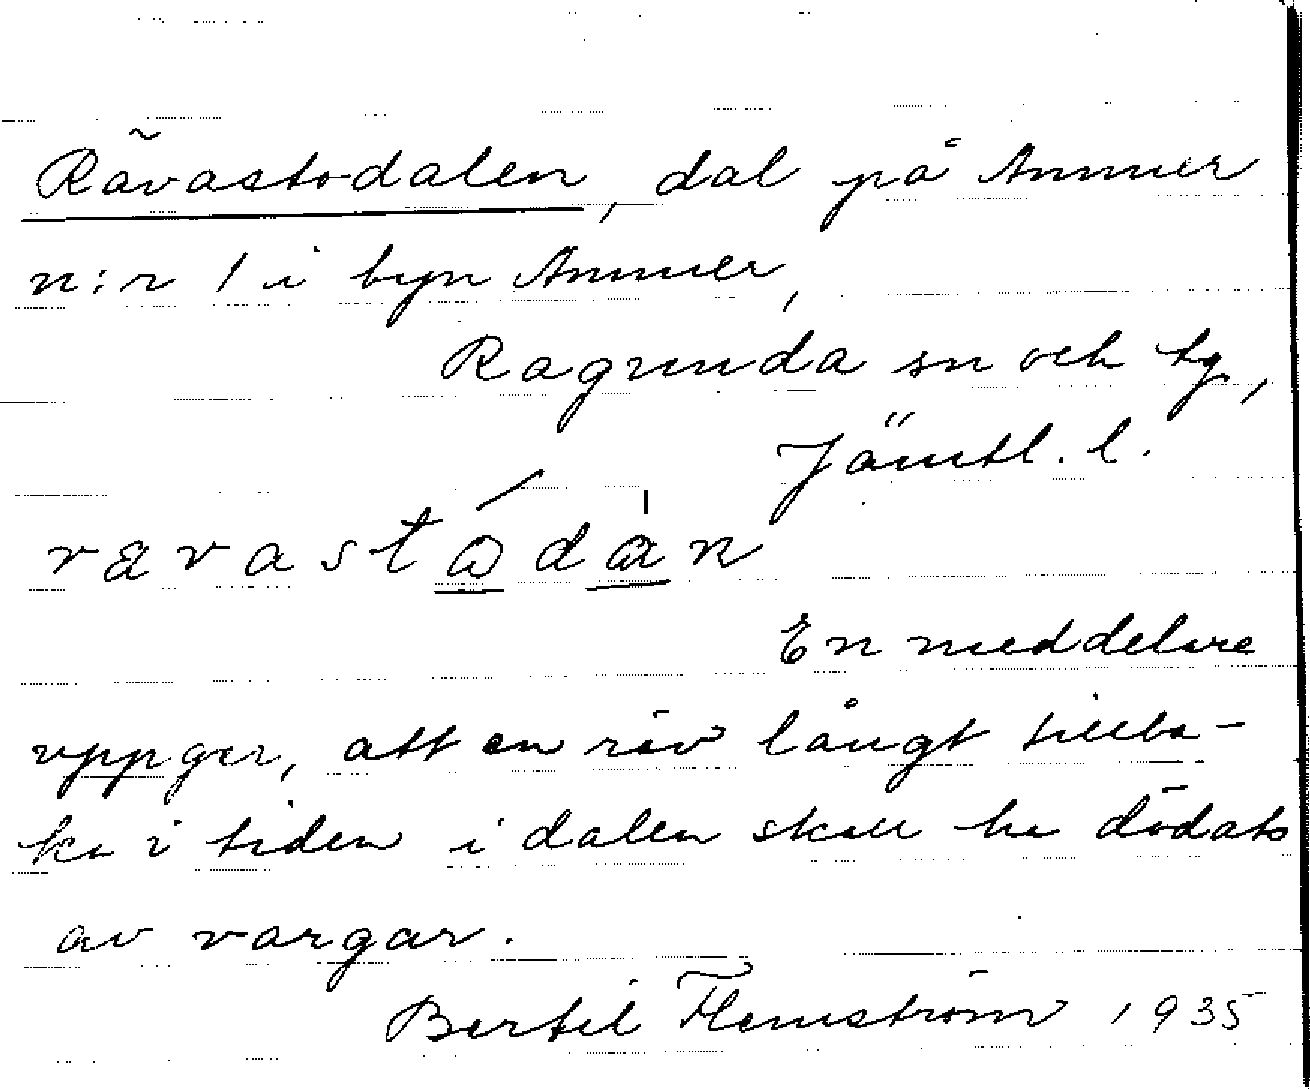 Rävastodalen, dal på Ammer
n:r 1 i byn Ammer,
Ragunda sn och tg,
Jämtl. l.
rævastodan
En meddelare
uppger, att en räv långt tillba-
ka i tiden i dalen skall ha dödats
av vargar.
Bertil Flemström 1935